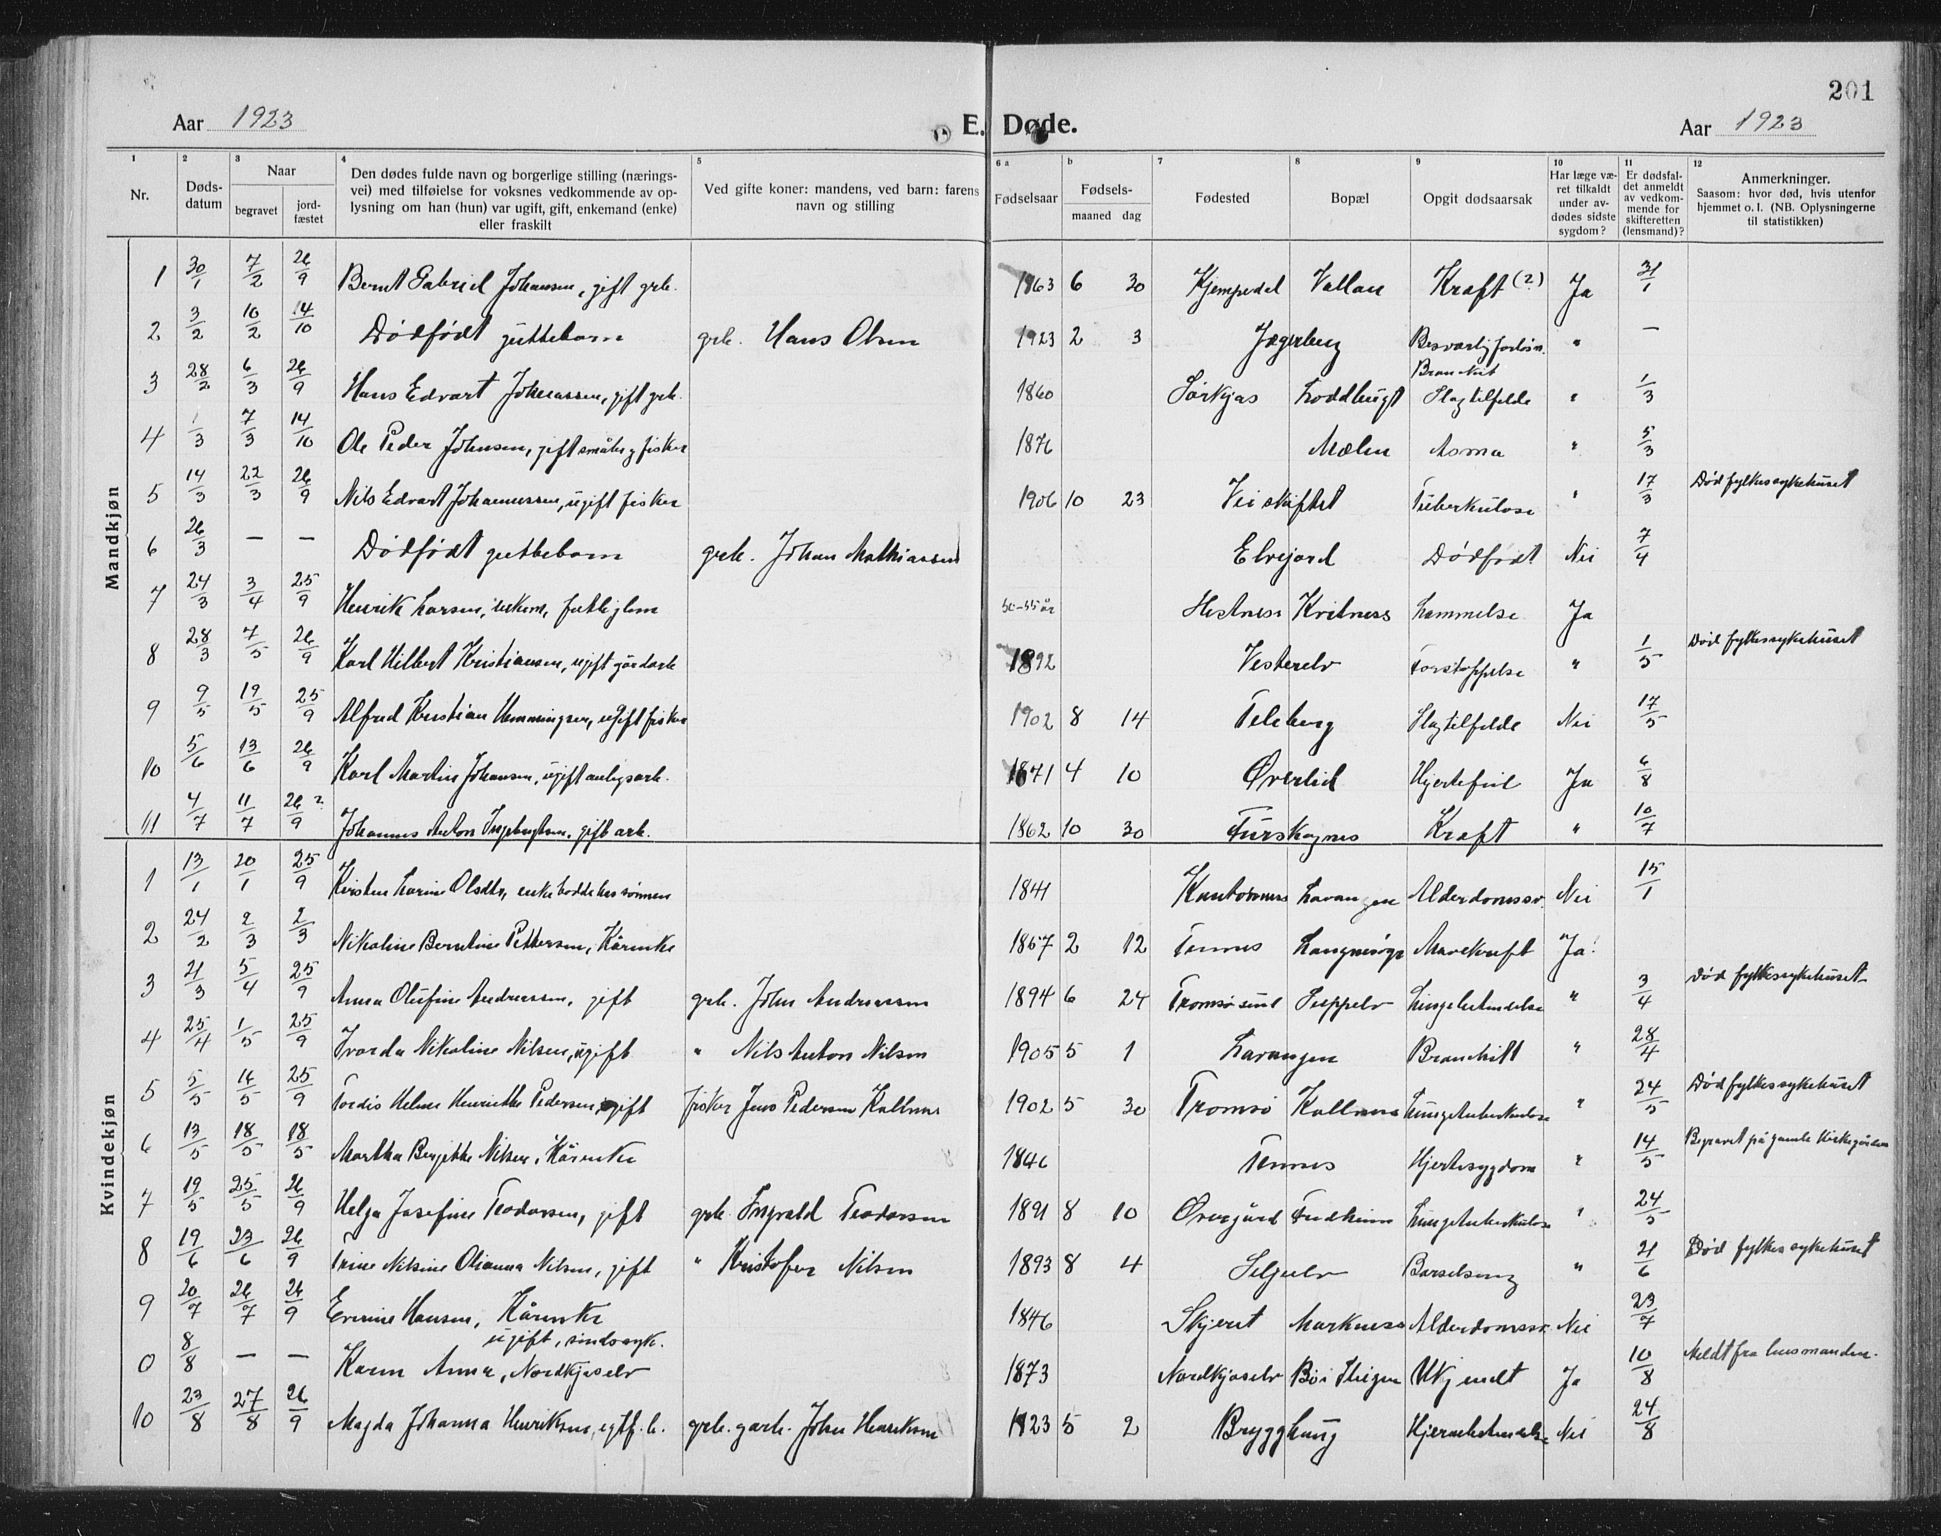 201
Aar 1923 E. Døde. Aar 1923
1 2 3 4 5 6 a b 7 8 9 10 11 12
Nr. Døds-datum Naar begravet jord-fæstet Den dødes fulde navn og borgerlige stilling (nærings-vei) med tilføielse for voksnes vedkommende av op-lysning om han (hun) var ugift, gift, enkemand (enke) eller fraskilt Ved gifte koner: mandens, ved barn: farens navn og stilling Fødselsaar Fødsels- maaned dag Fødested Bopæl Opgit dødsaarsak Har læge væ-ret tilkaldt under av-dødes sidste sygdom? Er dødsfal-det anmeldt av vedkom-mende for skifteretten (lensmand)? Anmerkninger. Saasom: hvor død, hvis utenfor hjemmet o. l. (NB. Oplysningerne til statistikken)
Mandkjøn
1 30/1 7/2 26/9 Bernt Gabriel Johansen, gift grb. 1863 6 30 Kjempedal Vollan Kraft (?) Ja 31/1
2 3/2 10/2 14/10 Dødfødt guttebarn grb. Hans Olsen 1923 2 3 Jægerberg Besværlig forløsn. " —
3 28/2 6/3 26/9 Hans Edvart Johanssen, gift grb. 1860 Sørkjos Loddbugt Slagtilfelde " 1/3
4 1/3 7/3 14/10 Ole Peder Johnsen, gift småbr g fisker 1876 Mælen Asma " 5/3
5 14/3 22/3 26/9 Nils Edvart Johannessen, ugift fisker 1906 10 23 Veiskiftet Tuberkulose " 17/3 Død fylkessykehuset
6 26/3 — — Dødfødt guttebarn grb. Johan Mathiassen Elvejord Dødfødt Nei 7/4
7 24/3 3/4 25/9 Henrik Larsen, enkem, fattiglem 50-55 år Hestness Kvitness Lammelse Ja
8 28/3 7/5 26/9 Karl Hilbert Kristiansen, ugift gårdarb 1892 Vesterelv Forstoppelse " 1/5 Død fylkessykehuset
9 9/5 19/5 25/9 Alfred Kristian Hemmingsen, ugift fisker 1902 8 14 Teleberg Slagtilfelde Nei 17/5
10 5/6 13/6 26/9 Karl Martin Johansen, ugift anlegsarb. 1871 4 10 Øverlid Hjertefeil Ja 6/8
11 4/7 11/7 26/9 ? Johannes Anton Ingebrigtsen, gift arb. 1862 10 30 Furskognes Kraft " 10/7
Kvindekjøn
1 13/1 20/1 25/9 Kirsten Karine Olsdtr, enke bodde hos sønnen 1841 Kantornes Lavangen Alderdomssv. Nei 15/1
2 24/2 2/3 2/3 Nikoline Berntine Pettersen, Kårenke 1867 2 12 Tennes Mavekræft Ja
3 21/3 5/4 25/9 Anna Olufine Andreassen, gift grb. John Andreassen 1894 6 24 Tromsøsund Seppelv Lungebetendelse " 3/4 Død fylkessykehuset
4 25/4 1/5 25/9 Nikoline Nilsen, ugift " Nils Anton Nilsen 1905 5 1 Lavangen Bronchitt " 28/4
5 5/5 14/5 25/9 Tordis Helene Henriette Pedersen, ugift fisker Jens Pedersen Kallnes 1902 5 30 Tromsø Kallness Lungetuberkulose " 24/5 Død fylkessykehuset
6 13/5 18/5 18/5 Martha Bergitte Nilsen, Kårenke 1846 Tennes Hjertesygdom " 14/5 Begravet på gamle kirkegården
7 19/5 25/5 26/9 Helga Josefine Teodorsen, gift grb. Ingvald Teodorsen 1891 8 10 Øvergård Fredheim Lungetuberkulose " 24/5
8 19/6 23/6 26/9 Trine Nilsine Olianna Nilsen, gift " Kristofer Nilsen 1893 8 4 Seljelv Barselseng " 21/6 Død fylkessykehuset
9 20/7 26/7 26/9 Evrine Hansen, Kårenke 1846 Skjeret Markness Alderdomssv. Nei 23/7
0 8/8 — — Karen Anna, Nordkjoselv ugift, sindssyk. 1873 Nordkjoselv Ukjendt Ja 10/8 Meldt fra lensmanden.
10 23/8 27/8 26/9 Magda Johanna Henriksen, egtf. b. grb. garb. John Henriksen 1923 5 2 Brygghaug Hjernebetendelse Nei 24/8